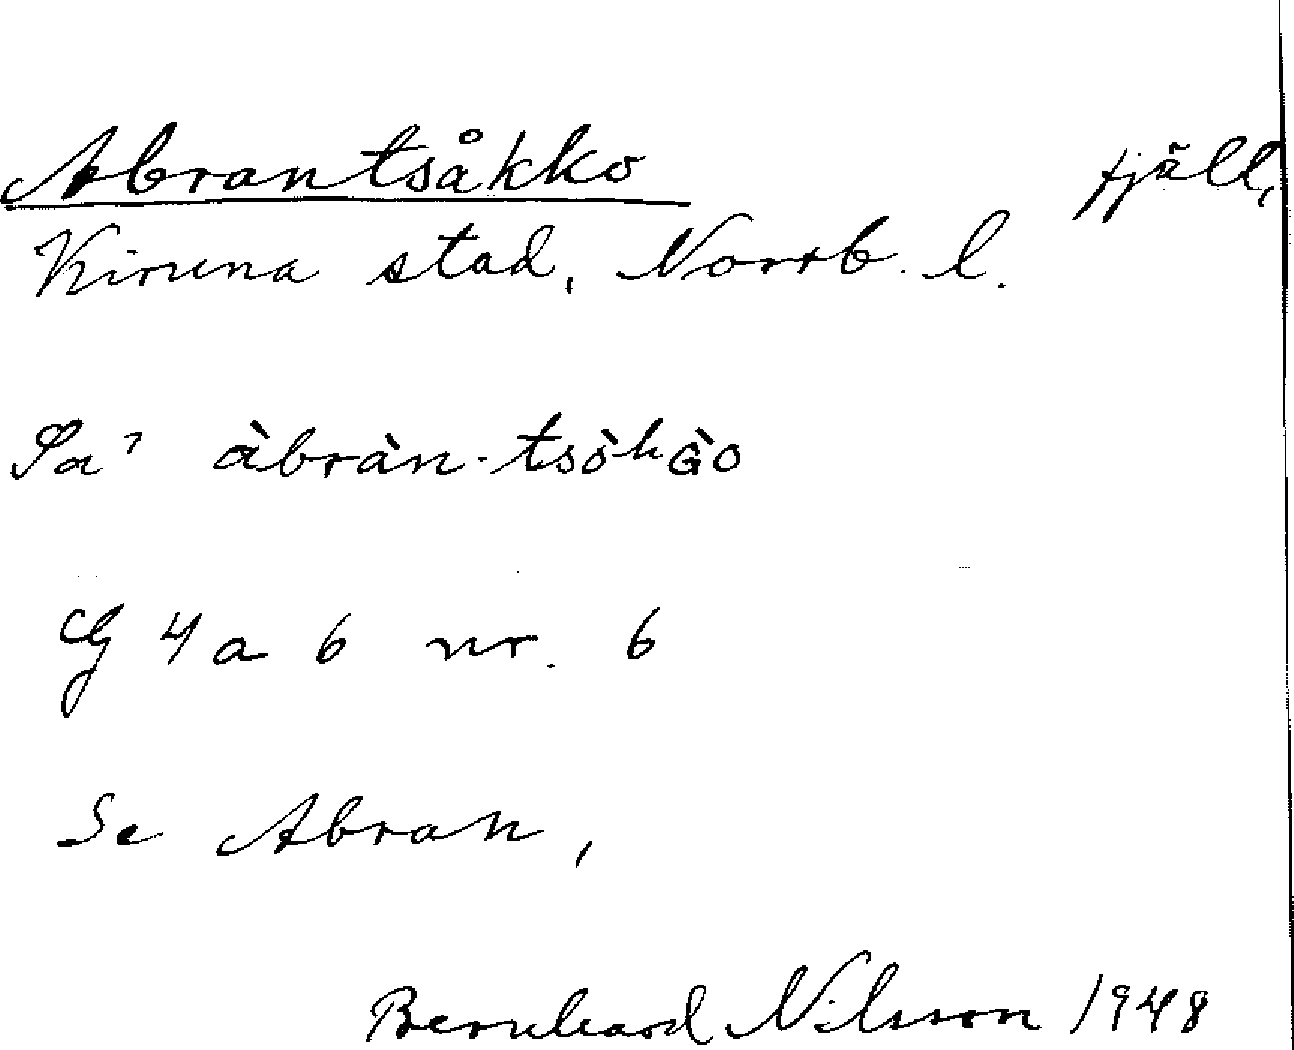 Abrantsåkko fjäll,
Kiruna stad, Norrb. l.
Sa' àbràn-tsòhG̀o
G 4 a 6 nr. 6
Se Abran,
Bernhard Nilsson 1948